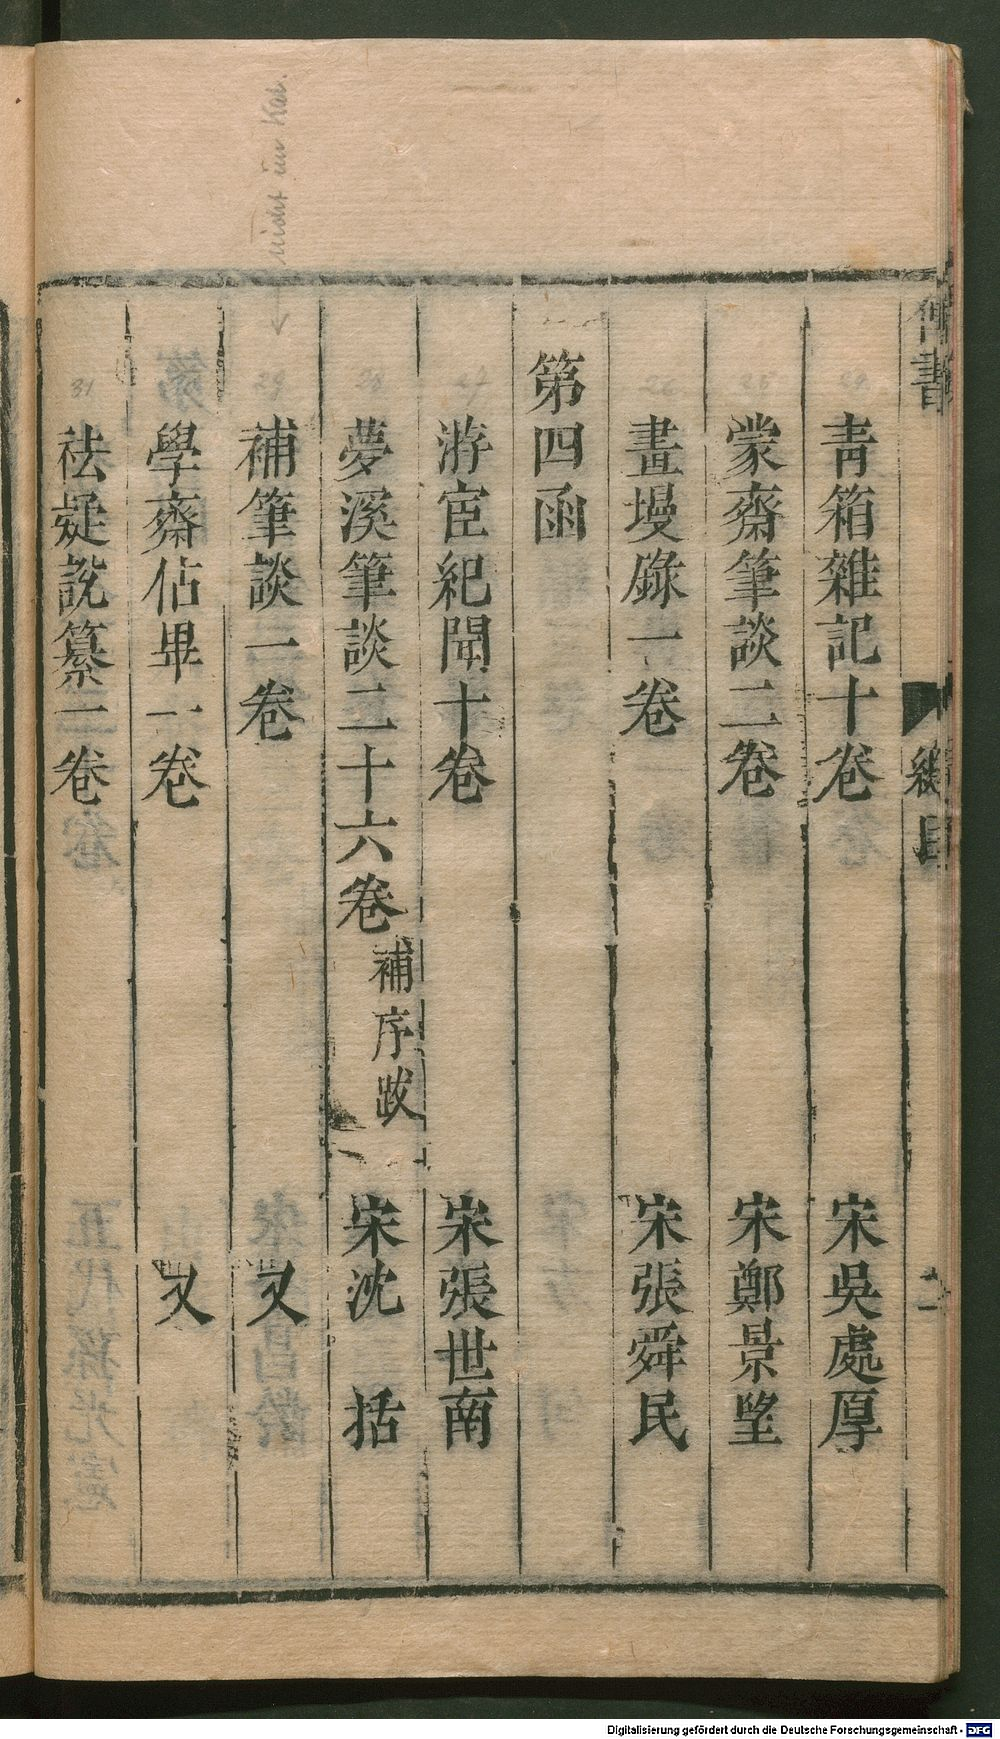 青箱雜記十卷 宋吳處厚
蒙齋筆談二卷 宋鄭景望
畫墁錄一卷 宋張舜民
第四函
游宦紀聞十卷 宋張世南
夢溪筆談二十六卷 補序跋 宋沈括
補筆談一卷 又
學齋佔畢一卷 又
祛疑說纂一卷
總目
nicht im Kat.
26
27
28
29
31
Digitalisierung gefördert durch die Deutsche Forschungsgemeinschaft - DFG